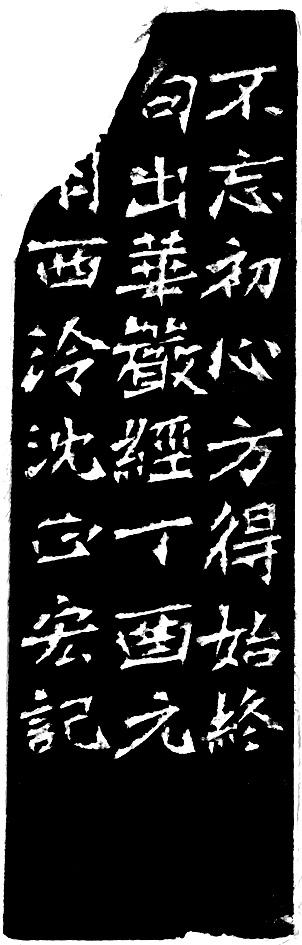 不忘初心方得始終
句出華嚴經丁酉元
月西泠沈正宏記